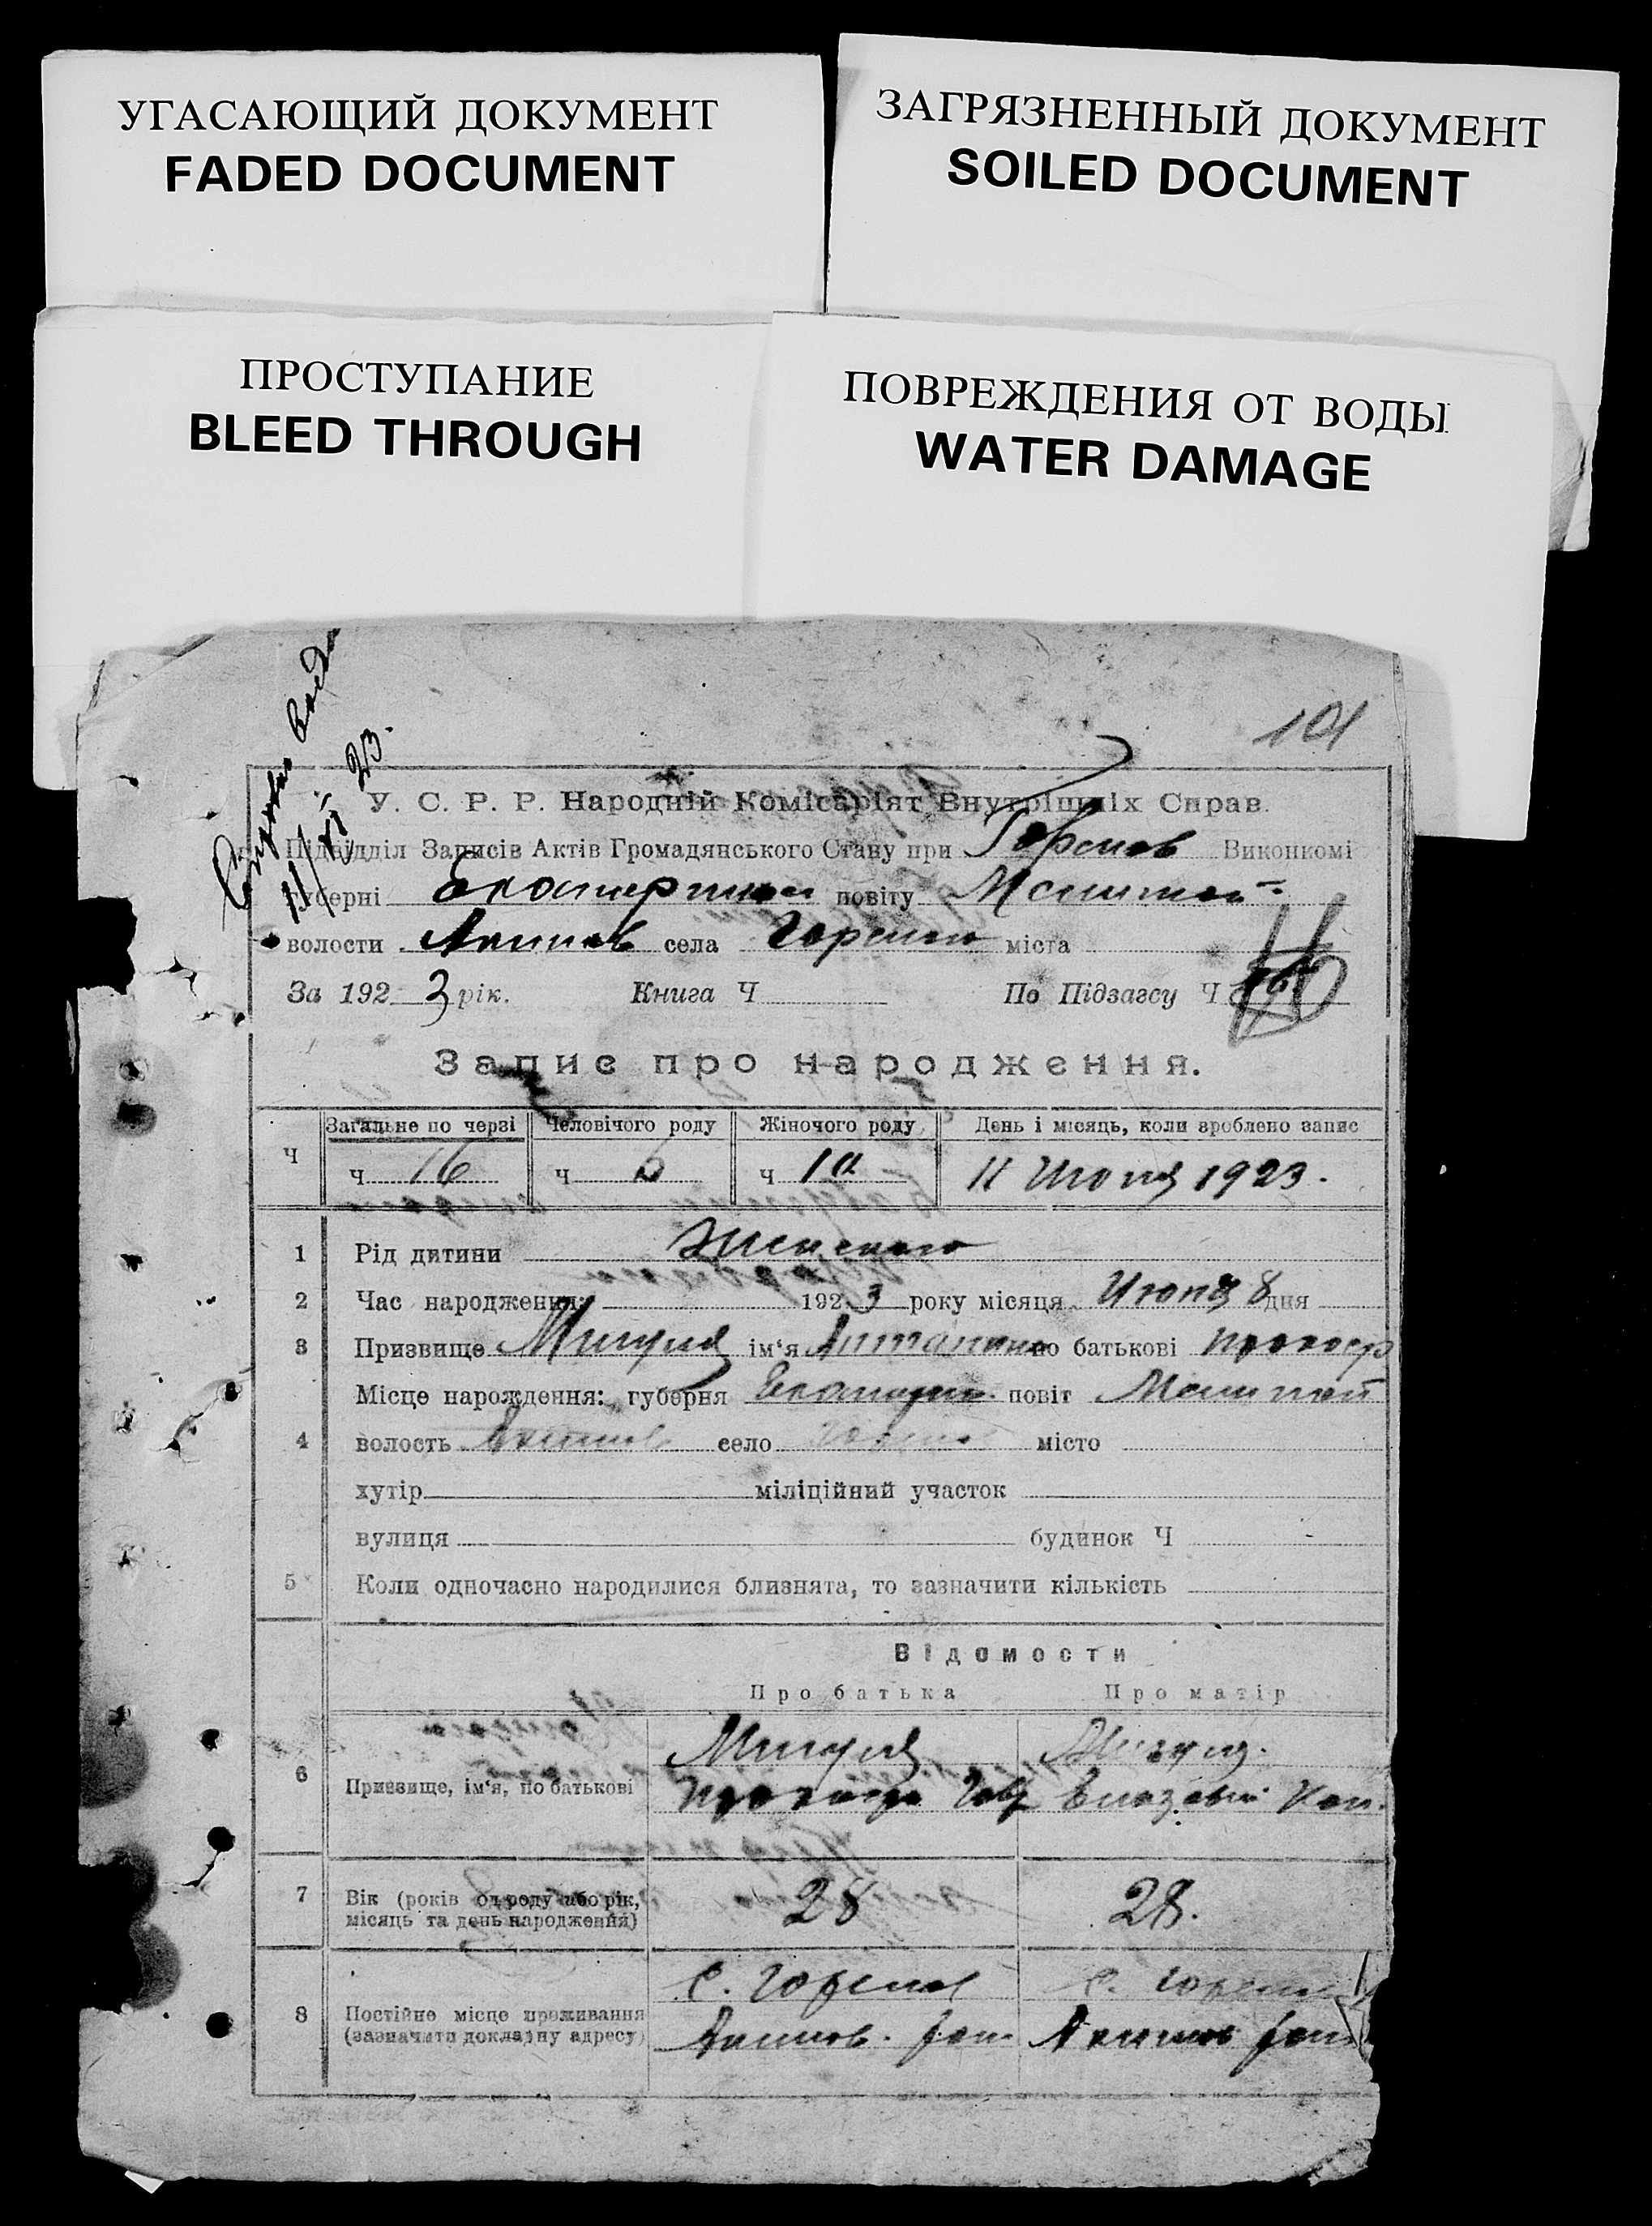 УГАСАЮЩИЙ ДОКУМЕНТ
FADED DOCUMENT
ЗАГРЯЗНЕННЫЙ ДОКУМЕНТ
SOILED DOCUMENT
ПРОСТУПАНИЕ
BLEED THROUGH
ПОВРЕЖДЕНИЯ ОТ ВОДЫ
WATER DAMAGE
101
11/VI 23.
У. С. Р. Р. Народній Комісаріят Внутрішніх Справ.
Підвідділ Записів Актів Громадянського Стану при Виконкомі
губерні повіту Мелитоп
волости Акимов села Горелово міста
За 192 3 рік. Книга Ч По Підзагсу Ч
Запис про народження.
Ч Загальне по черзі Человічого роду Жіночого роду День і місяць, коли зроблено запис
Ч 16 Ч 6 Ч 10 11 Июня 1923.
1 Рід дитини Женского
2 Час народження: 192 3 року місяця Июня 8 дня
3 Призвище Мигуля ім‘я по батькові прохор
Місце народження: губерня Екатерин. повіт Мелитоп
4 волость Акимов село Горелов місто
хутір міліційний участок
вулиця будинок Ч
5 Коли одночасно народилися близнята, то зазначити кількість
Відомости
Про батька Про матір
6 Призвище, ім‘я, по батькові Мигуля Мигуля.
Прохор
7 Вік (років од роду або рік, місяць та день народження) 28 28.
8 Постійне місце проживання (зазначити докладну адресу) с. Горелов с. Горелов
Акимов. рай Акимов рай